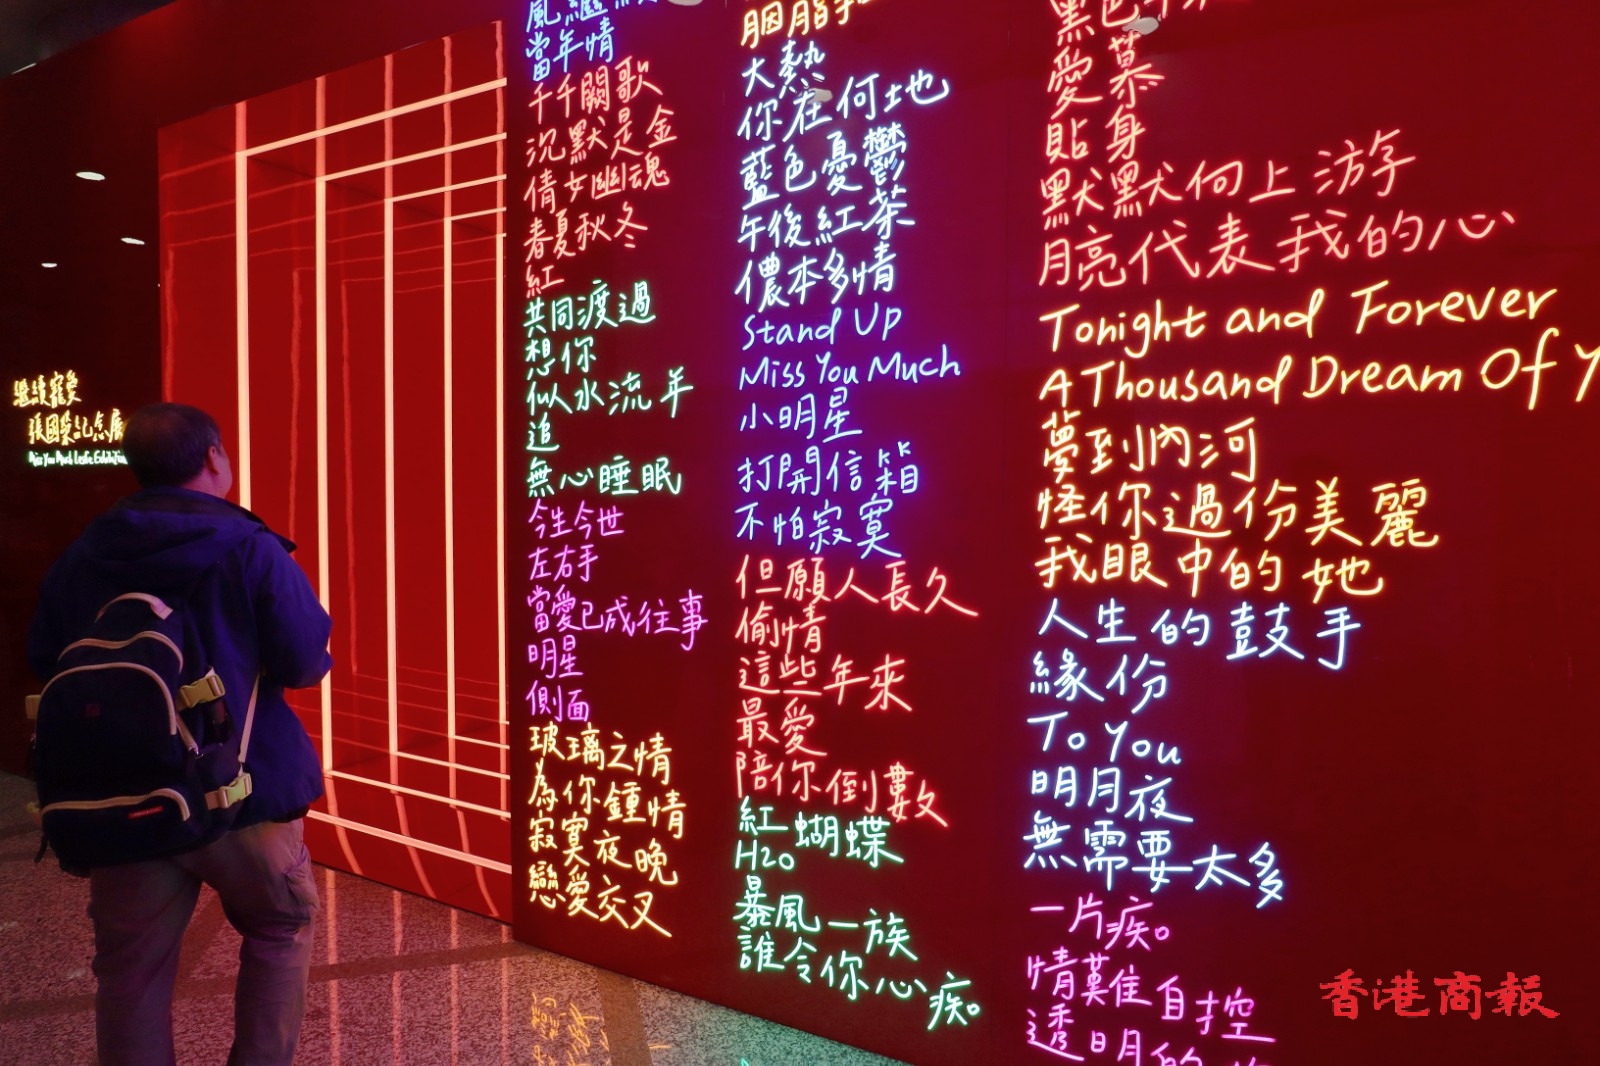 繼續寵愛
張國榮紀念展
Miss You Much Leslie Exhibition
風繼續
當年情
千千闕歌
沉默是金
倩女幽魂
春夏秋冬
紅
共同渡過
想你
似水流年
追
無心睡眠
今生今世
左右手
當愛已成往事
明星
側面
玻璃之情
為你鍾情
寂寞夜晚
戀愛交叉
胭脂扣
大熱
你在何地
藍色憂鬱
午後紅茶
儂本多情
Stand Up
Miss You Much
小明星
打開信箱
不怕寂寞
但願人長久
偷情
這些年來
最愛
陪你倒數
紅蝴蝶
H2O
暴風一族
誰令你心疾。
黑色午
愛慕
貼身
默默向上游
月亮代表我的心
Tonight and Forever
A Thousand Dream Of Y
夢到內河
怪你過份美麗
我眼中的她
人生的鼓手
緣份
To You
明月夜
無需要太多
一片疾。
情難自控
透明的
香港商報